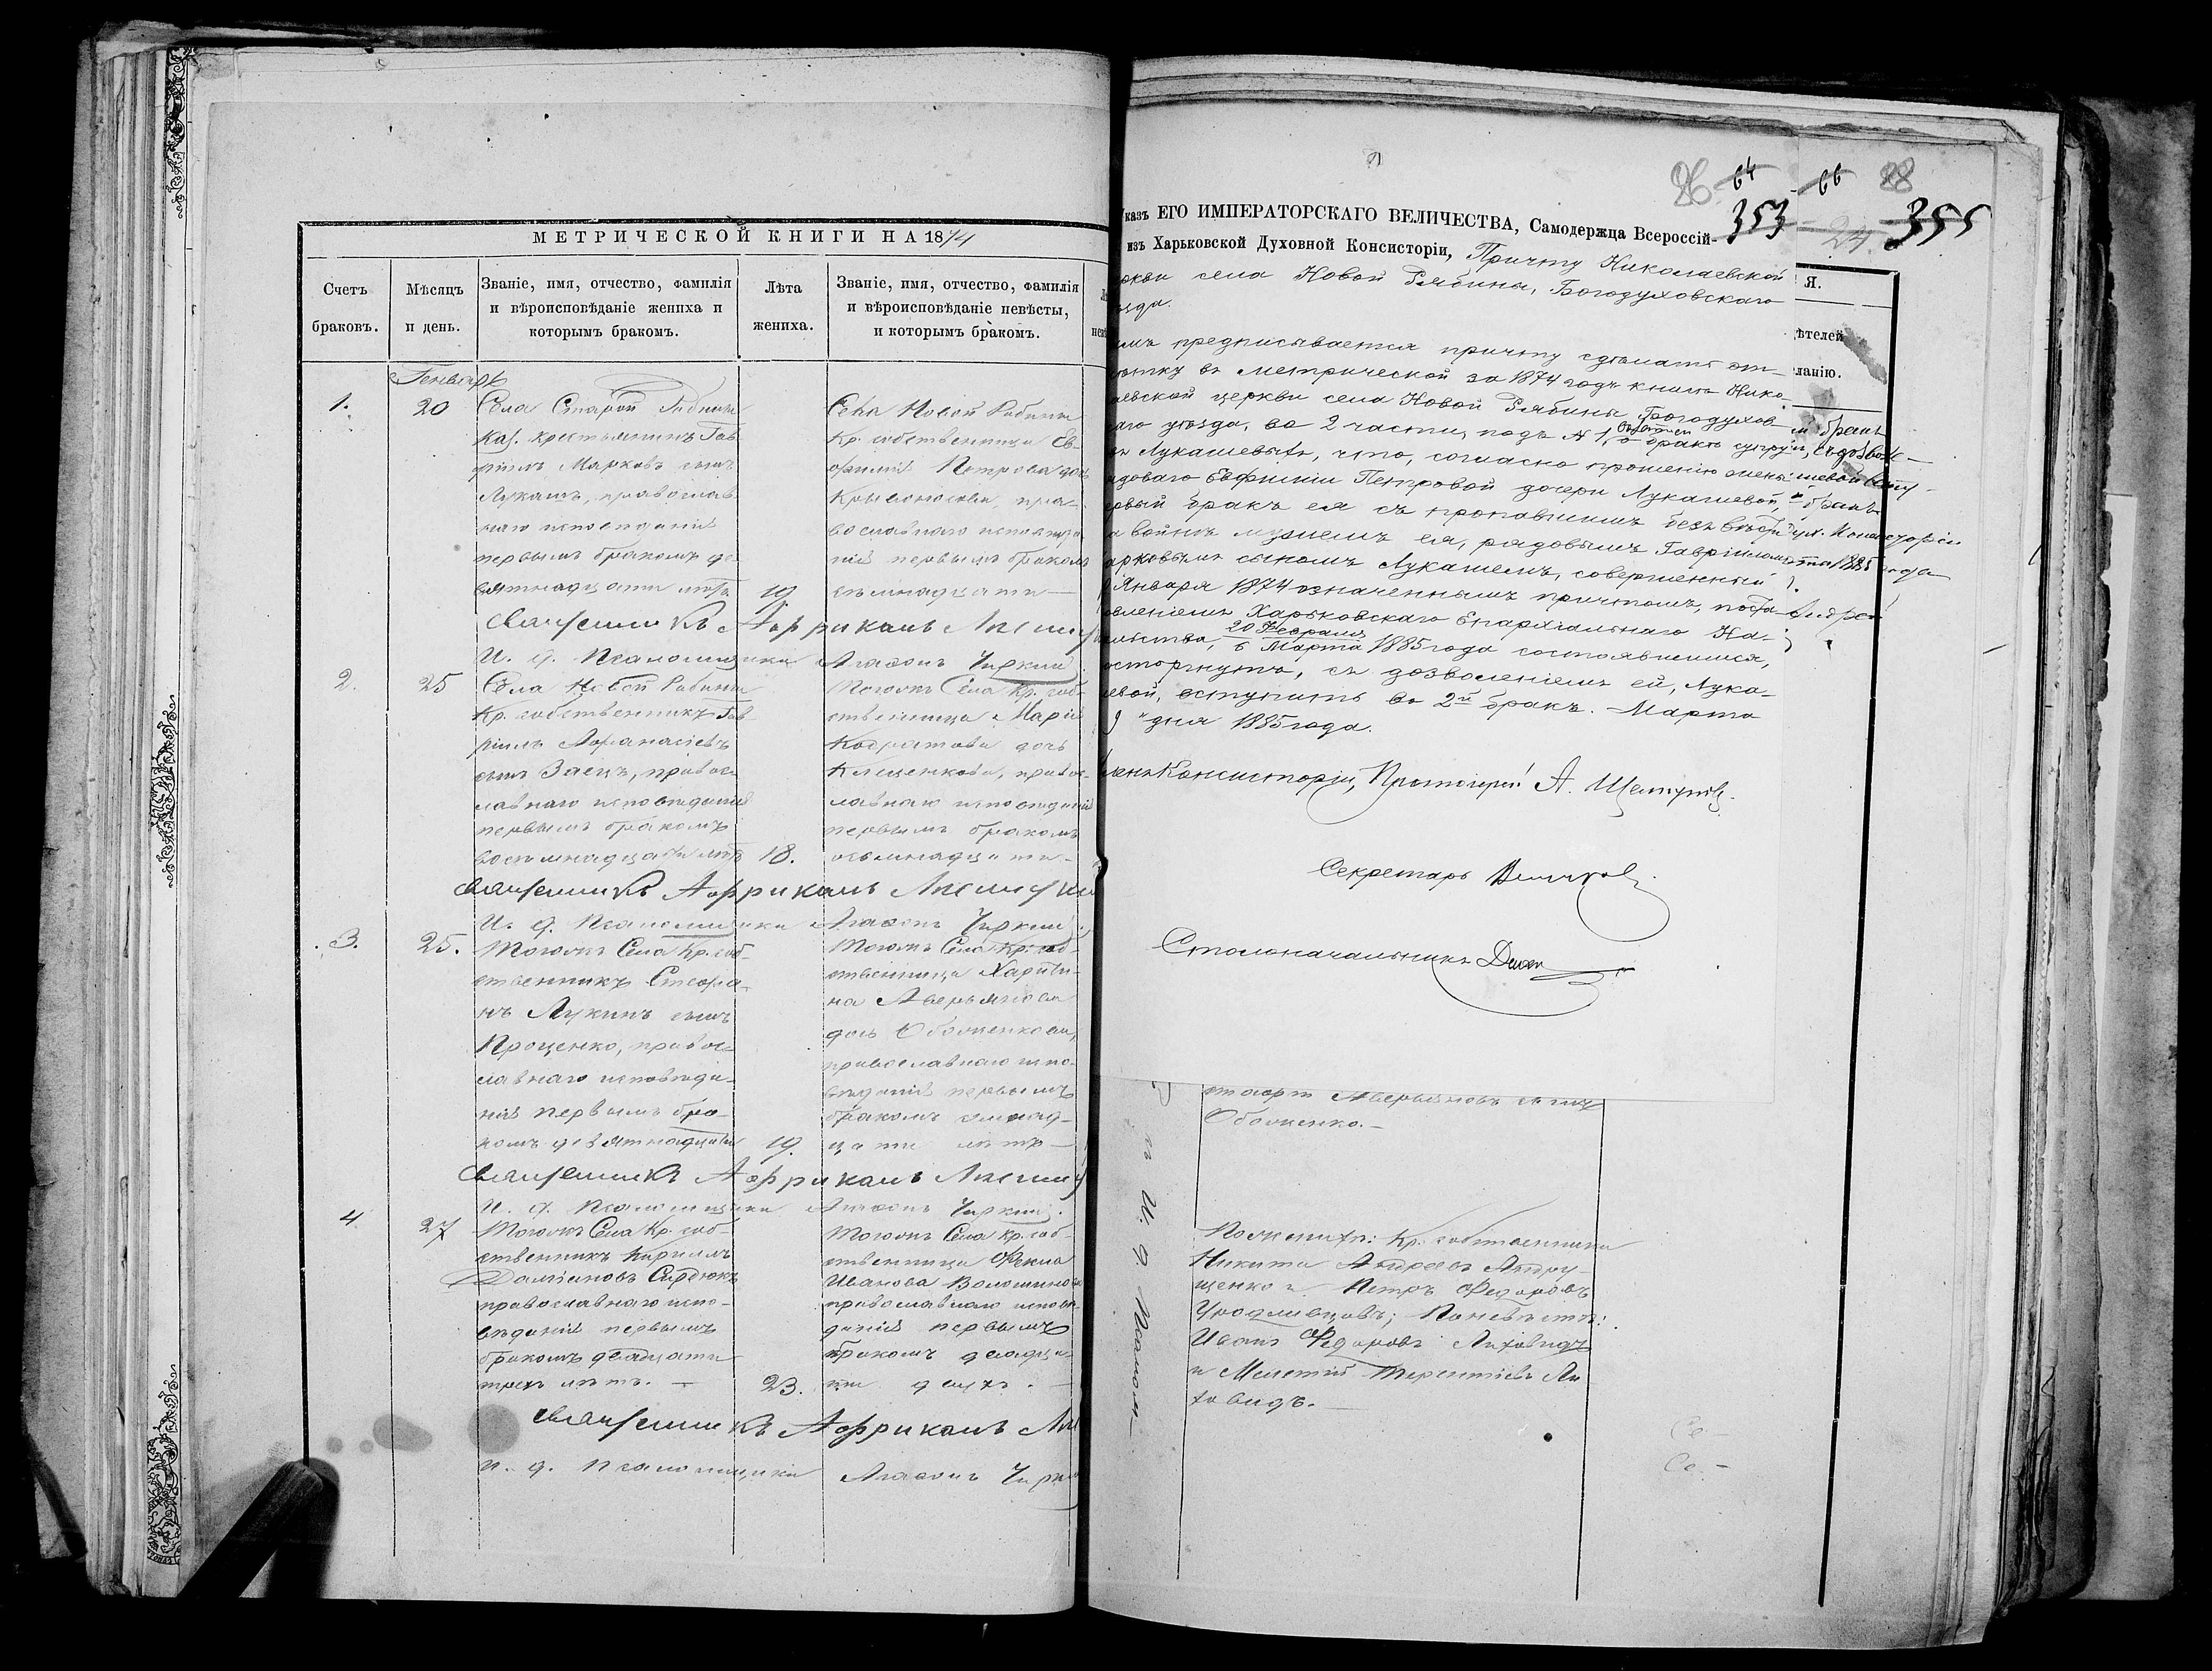 МЕТРИЧЕСКОЙ КНИГИ НА 1874
Счетъ браковъ.
Мѣсяцъ и день.
Званіе, имя, отчество, фамилія и вѣроисповѣданіе жениха и которымъ бракомъ.
Лѣта жениха.
Званіе, имя, отчество, фамилія и вѣроисповѣданіе невѣсты, и которымъ бракомъ.
Генварь
1.
20
Села Старой Рябины
Каз. крестьянинъ Гав
ріилъ Марковъ сынъ
Лукашъ, православ
наго исповѣданія
первымъ бракомъ де
вятнадцати лѣтъ
19.
Села Новой Рябины
Кр. собственница Ев
фимія Петрова дочь
пра
вославнаго исповѣда
нія первымъ бракомъ
Священникъ Аффриканъ
И. д. Псаломщика Агаѳонъ Чиркинъ
2.
25
Села Новой Рябины
Кр. собственникъ Гав
ріилъ Аѳанасіевъ
сынъ Заецъ, правос
лавнаго исповѣданія
первымъ бракомъ
восемнадцати лѣтъ
18.
Тогожъ Села Кр. соб
ственница Марія
Кодратова дочь
Клещенкова, правос
лавнаго исповѣданія
первымъ бракомъ
Священникъ Аффриканъ
И. д. Псаломщика Агаѳонъ Чиркинъ
3.
25.
Тогожъ Села Кр. соб
ственникъ Стефа
нъ Лукинъ сынъ
Проценко, правос
лавнаго исповѣда
нія первымъ бра
комъ девятнадцати
19.
Тогожъ Села Кр. соб
ственница Харити
на Аверьянова
дочь Оболенкова,
православнаго испо
вѣданія первымъ
бракомъ
цати лѣтъ
Священникъ Аффриканъ
И. д. Псаломщика Агаѳонъ Чиркинъ
4
27
Тогожъ Села Кр. соб
ственникъ Кириллъ
Даміановъ Сердюкъ
православнаго испо
вѣданія первымъ
бракомъ двадцати
трехъ лѣтъ.
23.
Тогожъ Села Кр. соб
ственница Фекла
Иванова Волошинова
православнаго исповѣ
данія первымъ
бракомъ двадца
ти двухъ.
Священникъ Аффриканъ
И. д. Псаломщика Агаѳонъ
26 64 66 28
353 24. 355
казъ ЕГО ИМПЕРАТОРСКАГО ВЕЛИЧЕСТВА, Самодержца Всероссій-
изъ Харьковской Духовной Консисторіи, Причту Николаевской
ркви села Новой Рябины, Богодуховскаго
ѣзда.
имъ предписывается причту сдѣлать от
мѣтку въ метрической за 1874 годъ книгѣ Нико
аевской церкви села Новой Рябины Богодухов
аго уѣзда, во 2 части, подъ № 1, о бракѣ супруг
въ Лукашевыхъ, что, согласно прошенію жены
ядоваго Евфиміи Петровой дочери Лукашевой,
ервый бракъ ея съ пропавшимъ безъ вѣсти
а войнѣ мужемъ ея, рядовымъ Гавріиломъ
арковымъ сыномъ Лукашемъ, совершенный
Января 1874 означеннымъ причтомъ, поста
овленіемъ Харьковскаго Епархіальнаго На
альства, 20 Февраля
6 Марта 1885 года состоявшимся,
асторгнутъ, съ дозволеніемъ ей, Лука
евой, вступить во 2й бракъ. Марта
9 дня 1885 года.
ленъ Консисторіи, Протоіерей А.
Секретарь
Столоначальникъ
Я.
ѣтелей
ланію.
Аверьяновъ сынъ
Оболенко.
По женихѣ: Кр. собственники
Никита Андреевъ Андру
щенко и Петръ Федоровъ
Уродливцовъ; По невѣстѣ:
Иванъ Федоровъ Лиховидъ
и Мелетій Терентіевъ Ли
ховидъ.
И. д. Псалом
Се
Се